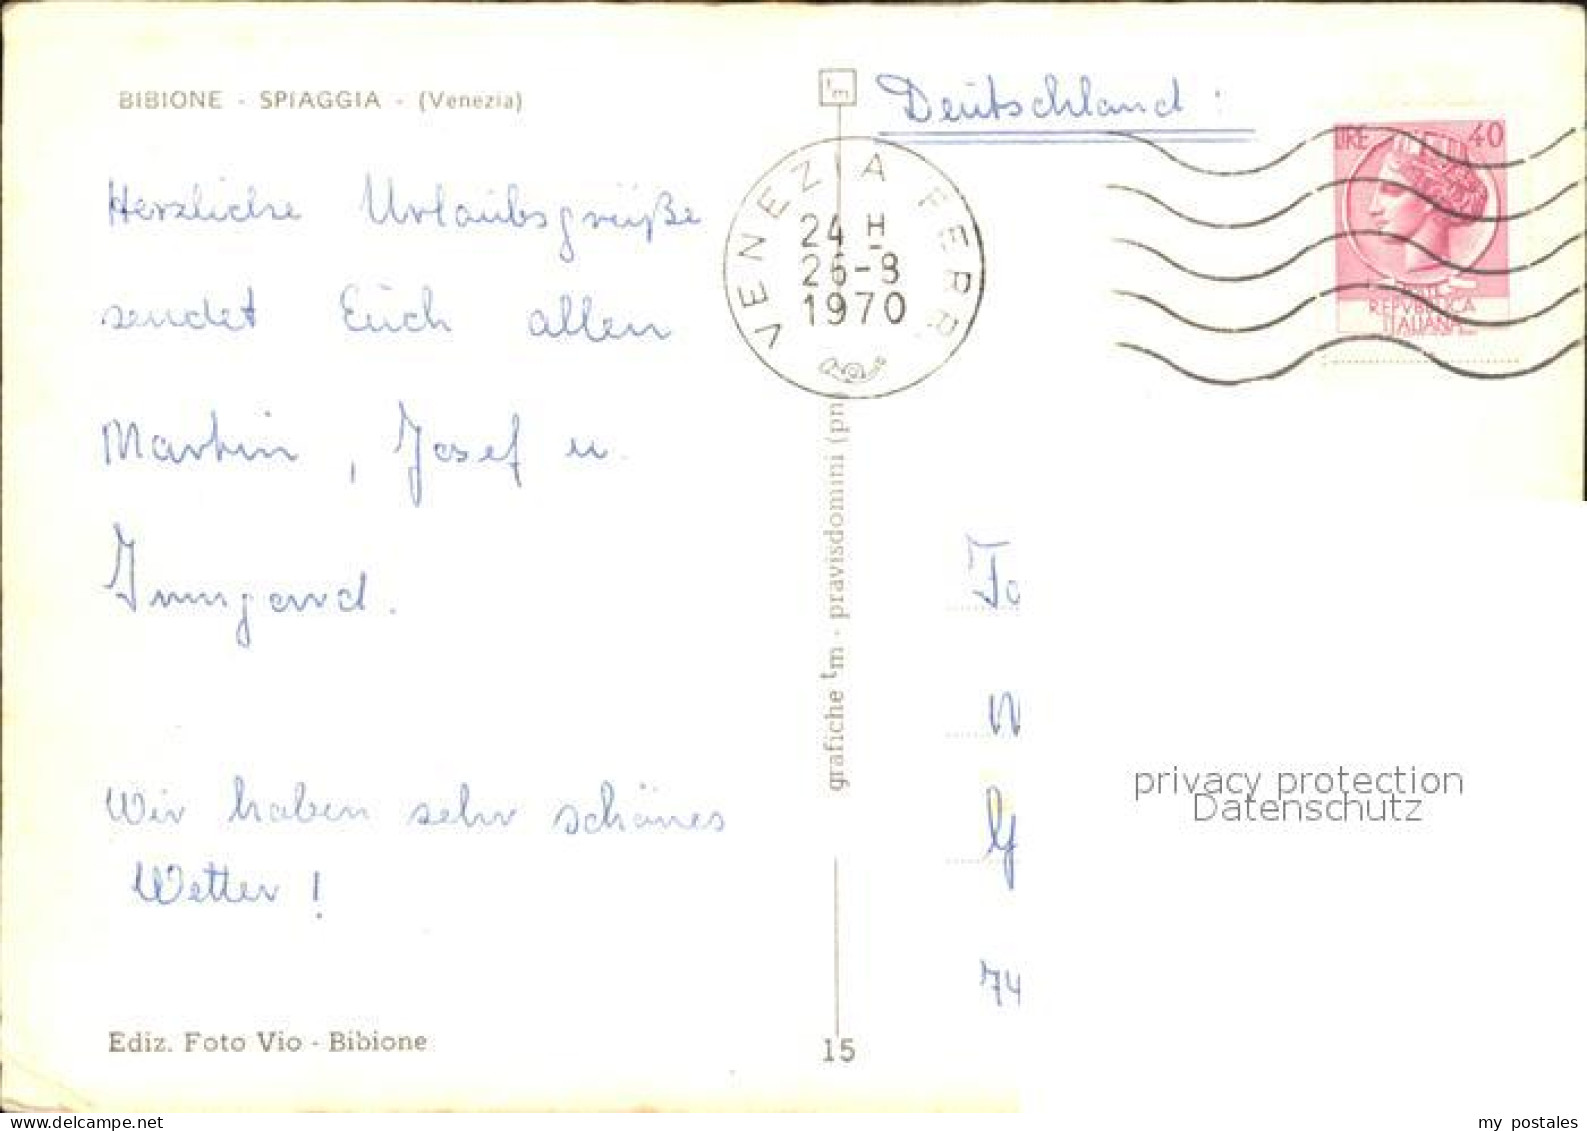 BIBIONE - SPIAGGIA - (Venezia)
Herzliche Urlaubsgrüße
sendet Euch allen
Martin, Josef u.
Irmgard.
Wir haben sehr schönes
Wetter!
Ediz. Foto Vio - Bibione
grafiche tm - pravisdomini (pn)
15
Deutschland:
VENEZIA FERR.
24 H
26-8
1970
LIRE 40
REPVBBLICA
ITALIANA
74
privacy protection
Datenschutz
my postales